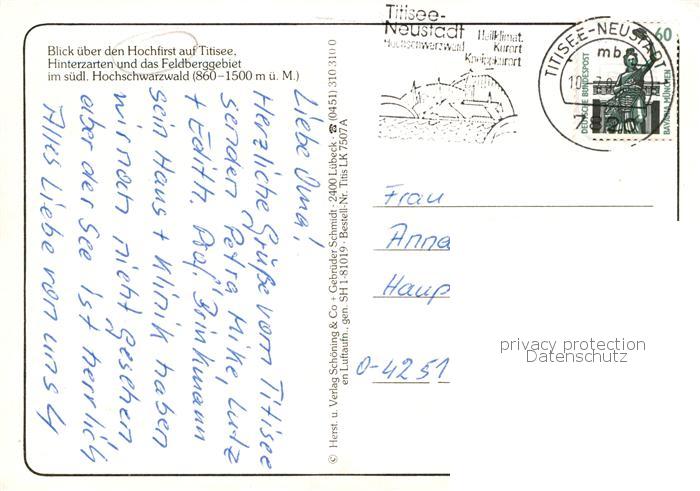 Blick über den Hochfirst auf Titisee,
Hinterzarten und das Feldberggebiet
im südl. Hochschwarzwald (860–1500 m ü. M.)
Liebe Oma!
Herzliche Grüße vom Titisee
senden Petra, Mike, Lutz
+ Edith. Prof. Brinkmann
sein Haus + Klinik haben
wir noch nicht gesehen
aber der See ist herrlich
Alles Liebe von uns 4
© Herst. u. Verlag Schöning & Co + Gebrüder Schmidt · 2400 Lübeck · ☎ (0451) 310 310 0
en Luftaufn., gen. SH 1-81019 · Bestell-Nr. Titis LK 7507A
Titisee-
Neustadt
Hochschwarzwald
Heilklimat.
Kurort
Kneippkurort
TITISEE-NEUSTADT
mb
7820 1
60
DEUTSCHE BUNDESPOST
BAVARIA MÜNCHEN
Frau
Anna
Haup
O-4251
privacy protection
Datenschutz